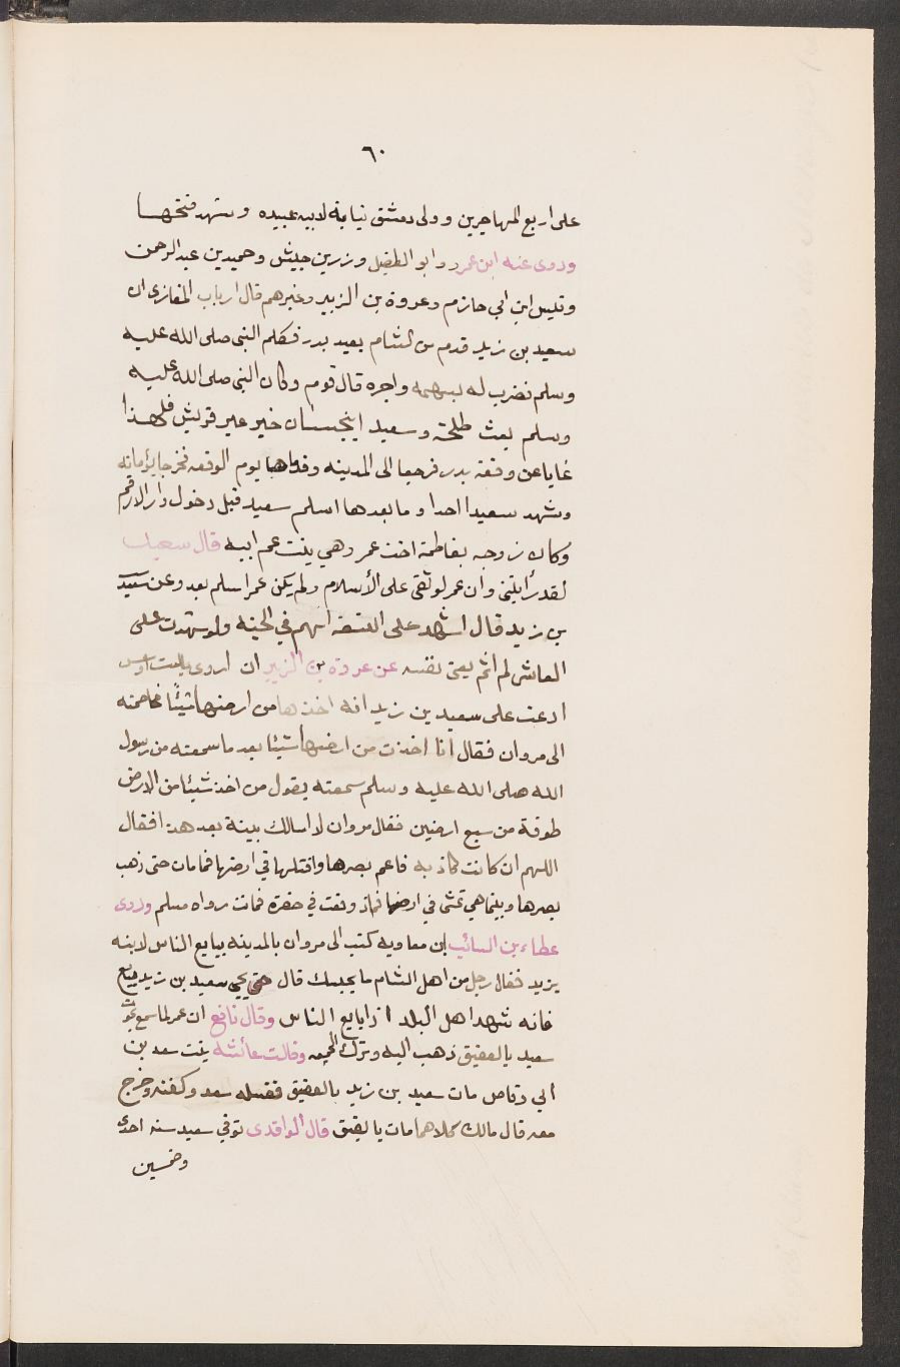 ٦٠
على اربع المهاجرين وولى دمشق نيابة لابيه عبيده وشهد فتحها
وروى عنه ابن عمر وابو الطفيل وزر بن حبيش وحميد بن عبد الرحمن
وقيس ابن ابي حازم وعروة بن الزبير وغيرهم قال ارباب المغازى ان
سعيد بن زيد قدم من الشام بعيد بدر فكلم النبى صلى الله عليه
وسلم فضرب له بسهمه واجره قال قوم وكان النبى صلى الله عليه
وسلم بعث طلحة وسعيد يتجسسان خبر عير قريش فلهذا
غابا عن وقعة بدر فرجعا الى المدينه وقدماها يوم الوقعه فخرجا يؤمانه
وشهد سعيدا احدا وما بعدها اسلم سعيد قبل دخول دار الارقم
وكان زوجه بفاطمة اخت عمر وهي بنت عم ابيه قال سعيد
لقد رأيتنى وان عمر لوثقى على الأسلام ولم يكن عمر اسلم بعد وعن سعيد
بن زيد قال اشهد على التسعة انهم في الجنه ولو شهدت على
العاشر لم اثم يعنى نفسه عن عروة بن الزبير ان اروى بنت اوس
ادعت على سعيد بن زيد انه اخذ لها من ارضها شيئًا فخاصمته
الى مروان فقال أنا اخذت من ارضها شيئا بعد ما سمعته من رسول
الله صلى الله عليه وسلم سمعته يقول من اخذ شيئا من الارض
طوقة من سبع ارضين فقال مروان لا اسالك بينة بعد هذا فقال
اللهم ان كانت كاذبه فاعم بصرها واقتلها في ارضها فما مات حتى ذهب
بصرها وبينما هي تمشى فى ارضها اذ وقعت في حفرة فماتت رواه مسلم وروى
عطاء بن السائب ان معاويه كتب الى مروان بالمدينه يبايع الناس لابنه
يزيد فقال رجل من اهل الشام ما يحبسك قال حتى يجى سعيد بن زيد يبايع
فانه شهد اهل البلد اذا بايع الناس وقال نافع ان عمر لما سمع بموت
سعيد بالعقيق ذهب اليه وترك الجمعه وقالت عائشه بنت سعد بن
ابي وقاص مات سعيد بن زيد بالعقيق فغسله سعد وكفنه وخرج
معه قال مالك كلاهما مات بالعقيق قال الواقدى توفي سعيد سنه احدى
وخمسين